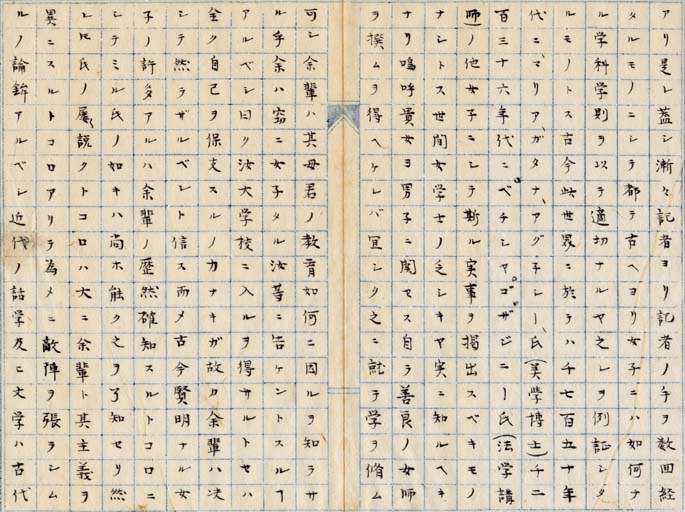 アリ是レ蓋シ漸々記者ヨリ記者ノ手ヲ数回経
タルモノニシテ都テ古ヘヨリ女子ニハ如何ナ
ル学科学則ヲ以テ適切ナルヤ之レヲ例証シタ
ル・モノトス古今此世界ニ於テハ千七百五十年
代ニ、マリア、ガタナ、アグ子シー、氏(美学博士)千二
百三十六年代ニ、ベチシヤ、ゴザジニー氏(法学講
師)ノ他女子ニシテ斯ル実事ヲ掲出スベキモノ
ナシトス世間女学士ノ乏シキヤ実ニ知ルヘキ
ナリ嗚呼貴女ヨ男子ニ関セス自ラ善良ノ女師
ヲ撰ムヲ得ヘケレバ宜シク之ニ就テ学ヲ脩ム
可シ余輩ハ其母君ノ教育如何ニ因ルヲ知ラサ
ル乎余ハ窃ニ女子タル汝等ニ告ケントスルヿ
アルベシ曰ク汝大学校ニ入ルヲ得サルトセハ
全ク自己ヲ保支スルノカナキガ故カ余輩ハ决
シテ然ラザルベシト信ス而メ古今賢明ナル女
子ノ許多アルハ余輩ノ歴然確知スルトコロニ
シテミル氏ノ如キハ尚ホ能ク之ヲ了知セリ然
レ𪜈氏ノ屡説クトコロハ大ニ余輩ト其主義ヲ
異ニスルトコロアリテ為メニ敵陣ヲ張ラシム
ルノ論鉾アルベシ近代ノ詰学及ニ文学ハ古代